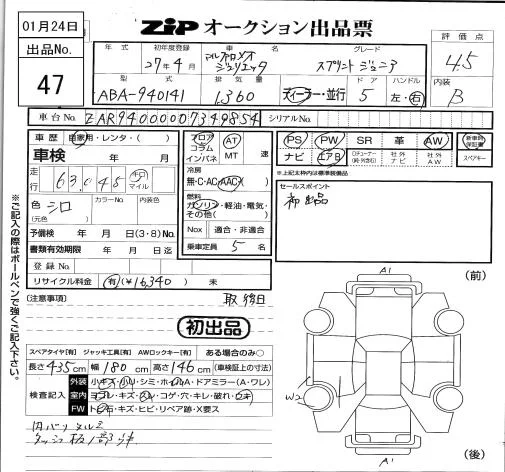 01月24日
出品No.
47
ZIP オークション出品票
評価点
4.5
内装
B
年式 初年度登録 車名 グレード
27年4月 アルファロメオ ジュリエッタ スプリント
型式 排気量 ドア ハンドル
ABA-940141 1,360 ディーラー・並行 5 左・右
車台No. ZAR94000007349854 シリアルNo.
車歴 自家用・レンタ・( )
車検 年 月
走行 63,045 キロ マイル
色 シロ (元色) カラーNo. 内装色
予備検 年 月 日(3・8)No.
書類有効期限 年 月 日迄
登録No.
リサイクル料金 有(¥16,340) 未
フロア コラム インパネ AT MT 速
冷房
無・C・AC・AAC
燃料
ガソリン・軽油・電気・その他( )
Nox 適合・非適合
乗車定員 5 名
PS PW SR 革 AW 新車時保証書
ナビ エアB 社外ナビ 社外AW スペアキー
※上記太枠内は標準装備品
セールスポイント
初出品
[注意事項]
初出品
スペアタイヤ[有] ジャッキ工具[有] AWロックキー[有] ある場合のみ○
長さ 435cm 幅 180cm 高さ 146cm (車検証上の寸法)
検査記入
外装 小キズ・小リ・シミ・ホイルA・ドアミラー(A・ワレ)
室内 ヨゴレ・キズ・スレ・コゲ・穴・キレ・破れ・ウキ
FW トビ石・キズ・ヒビ・リペア跡・X要ス
内バリ
A1
(前)
W2
A1
(後)
※ご記入の際はボールペンで強くご記入下さい。